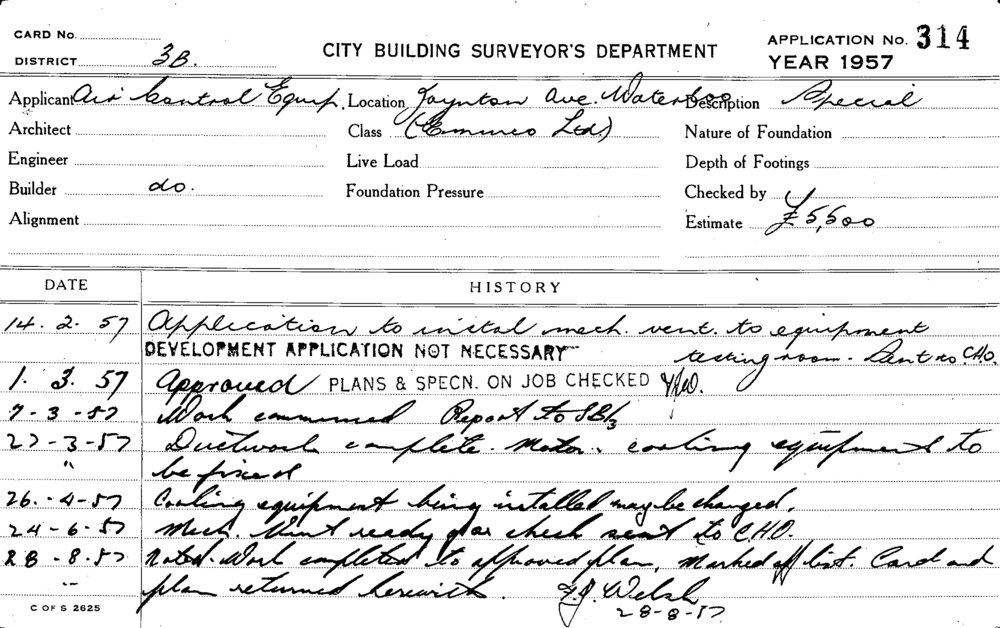 CARD No.
DISTRICT 3B.
CITY BUILDING SURVEYOR'S DEPARTMENT
APPLICATION No. 314
YEAR 1957
Applicant Air Control Equip. Location Joynton Ave. Waterloo Description Special
Architect Class (Emmco Ltd) Nature of Foundation
Engineer Live Load Depth of Footings
Builder do. Foundation Pressure Checked by
Alignment Estimate £5,500
DATE HISTORY
14. 2. 57 Application to instal mech. vent. to equipment
DEVELOPMENT APPLICATION NOT NECESSARY testing room. Sent to C.H.O.
1. 3. 57 Approved PLANS & SPECN. ON JOB CHECKED
7-3-57 Work commenced Report to SB/3
27-3-57 Ductwork complete. Motor. cooling equipment to
" be fixed
26.-4-57 Cooling equipment being installed may be changed.
24-6-57 Mech. Vent ready for check sent to C.H.O.
28-8-57 Noted. Work completed to approved plan. Marked off list. Card and
plan returned herewith. Welsh
28-8-57
C OF S 2625